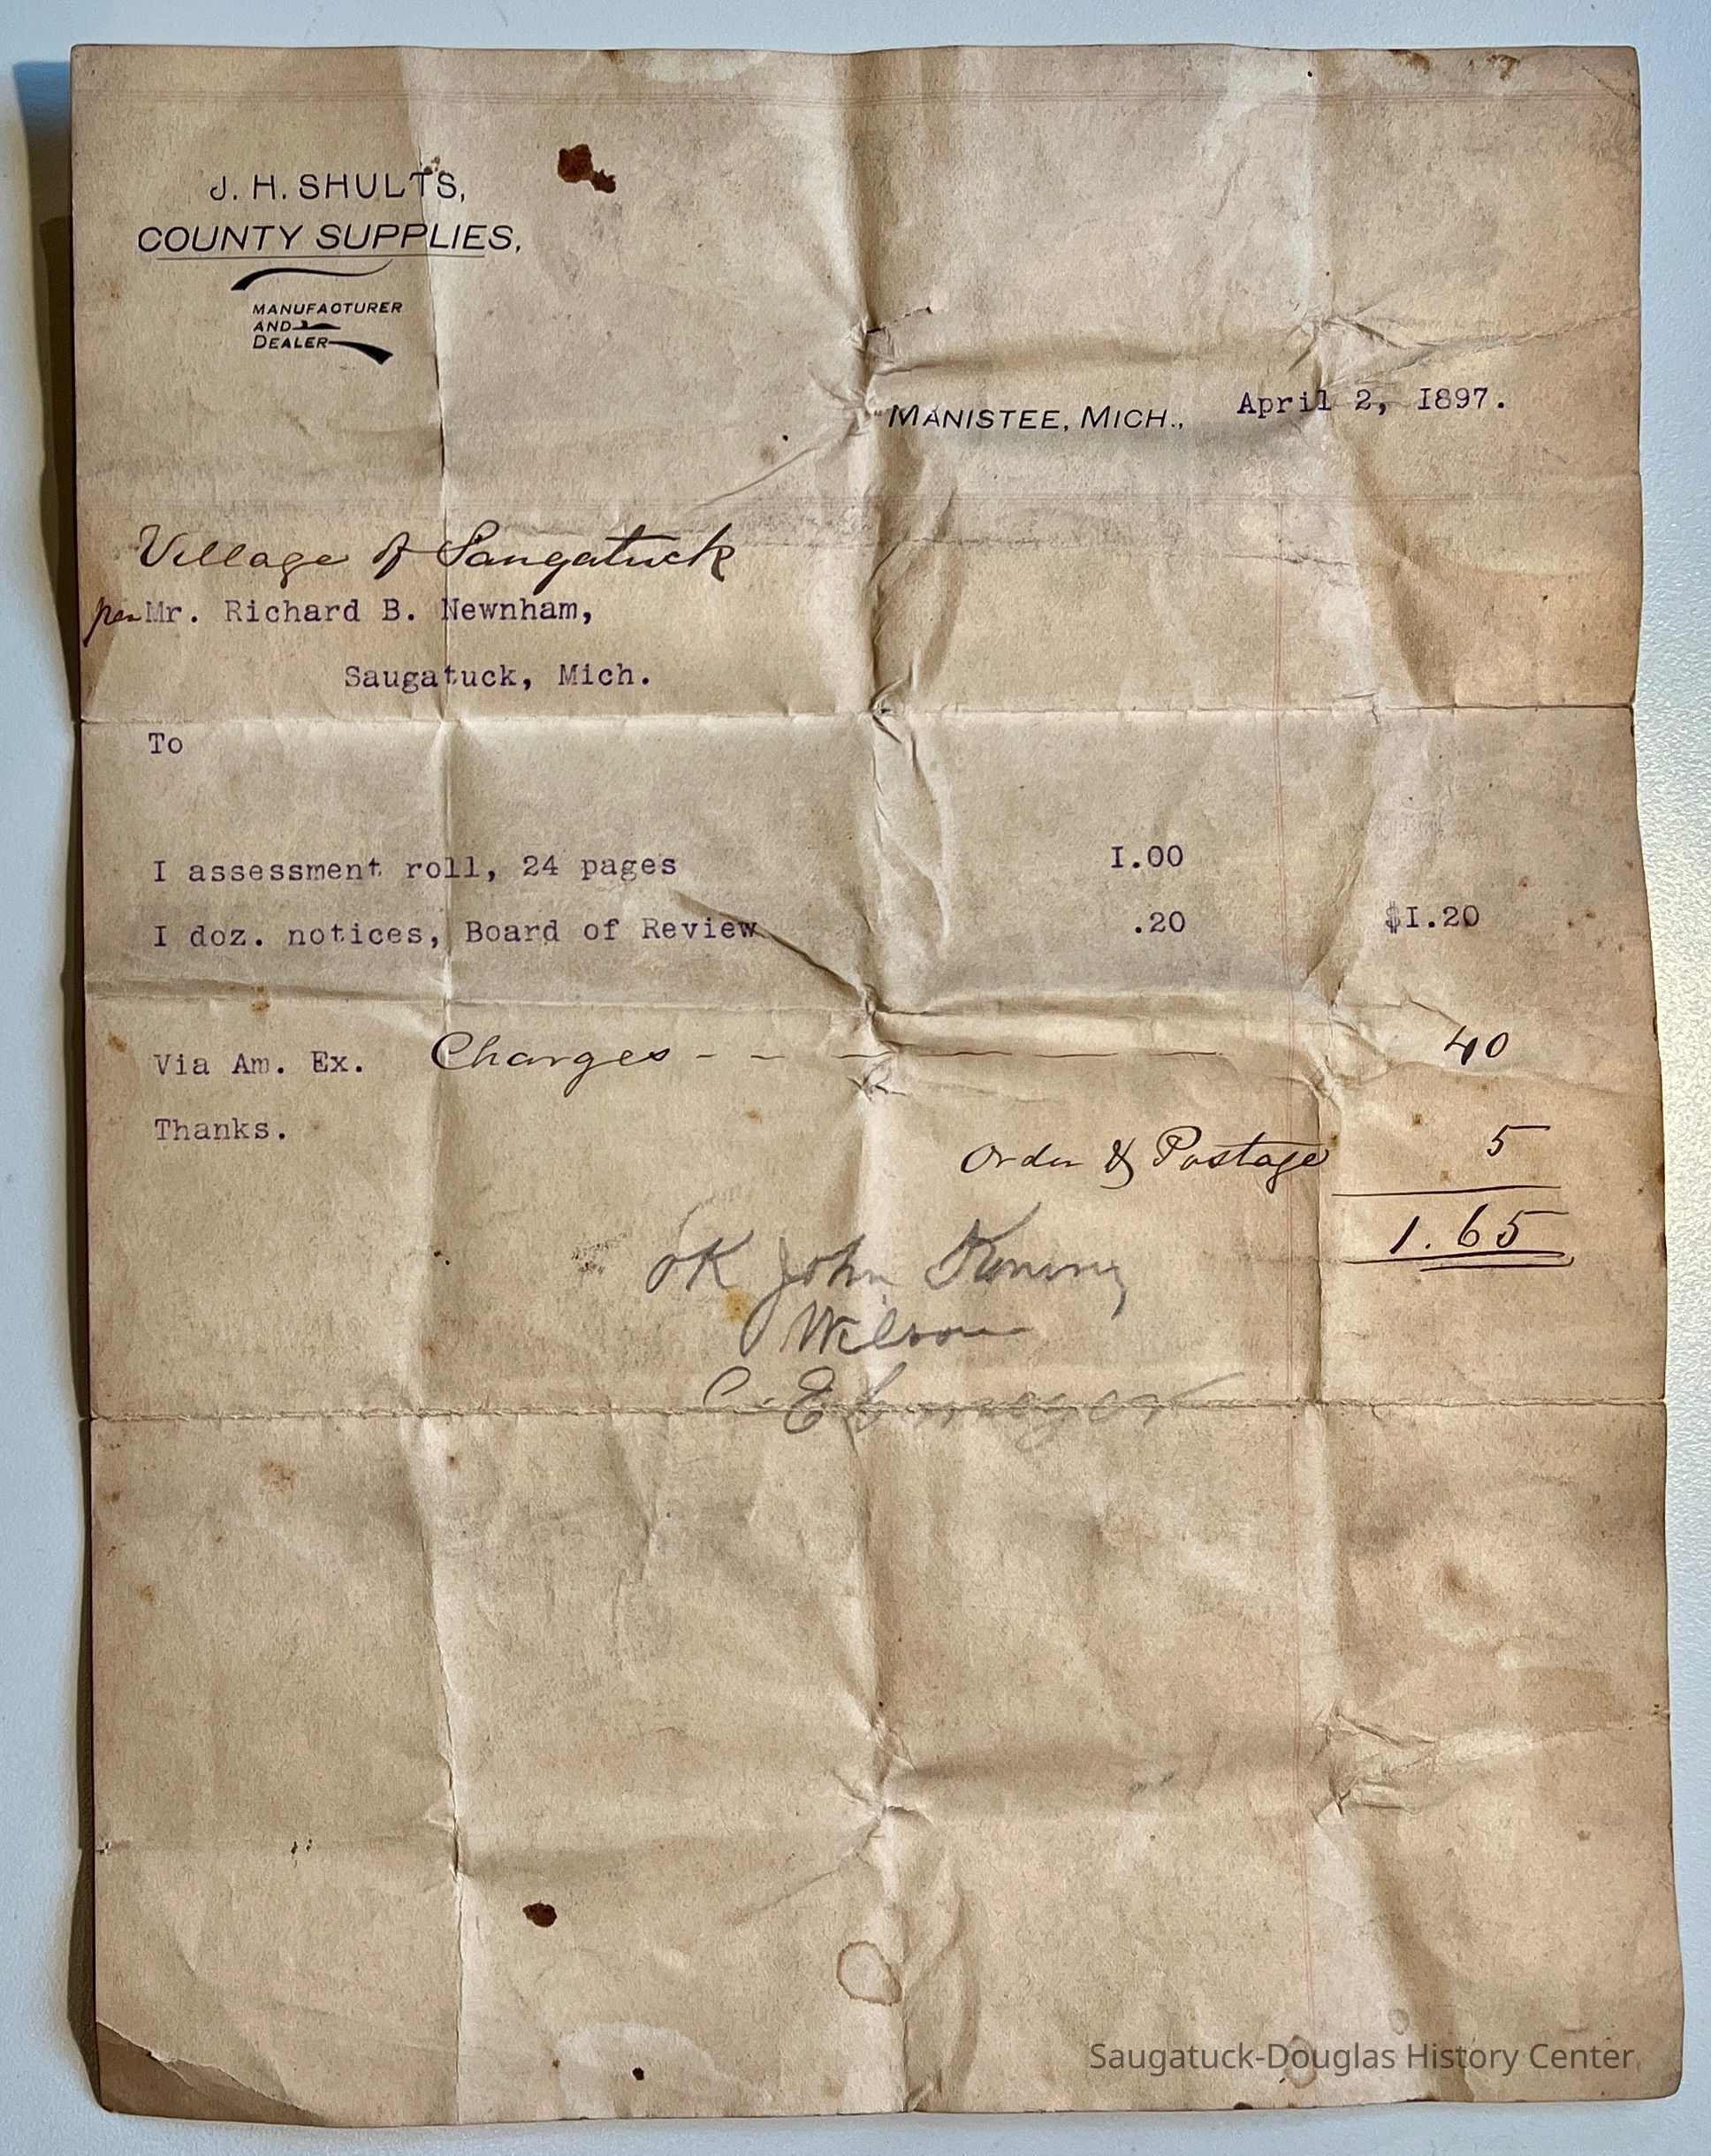 J. H. SHULTS,
COUNTY SUPPLIES,
MANUFACTURER
AND
DEALER
MANISTEE, MICH., April 2, 1897.
Village of Saugatuck
per Mr. Richard B. Newnham,
Saugatuck, Mich.
To
I assessment roll, 24 pages 1.00
I doz. notices, Board of Review .20 $1.20
Via Am. Ex. Charges - - - - - - 40
Thanks.
Order & Postage 5
1.65
OK John
Wilson
C. E.
Saugatuck-Douglas History Center